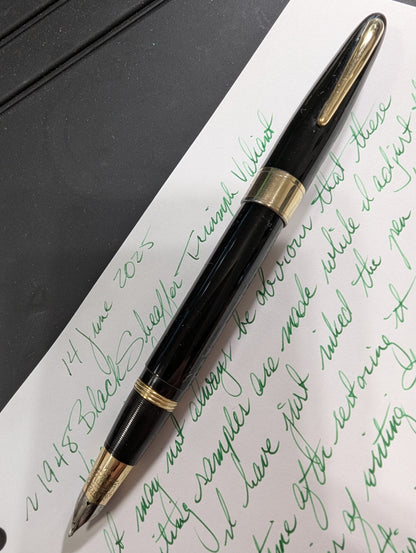 14 June 2025
~ 1948 Black Sheaffer Triumph Valiant
It may not always be obvious that these
writing samples are made while I adjust
I have just inked the pen
time after restoring it
of writing